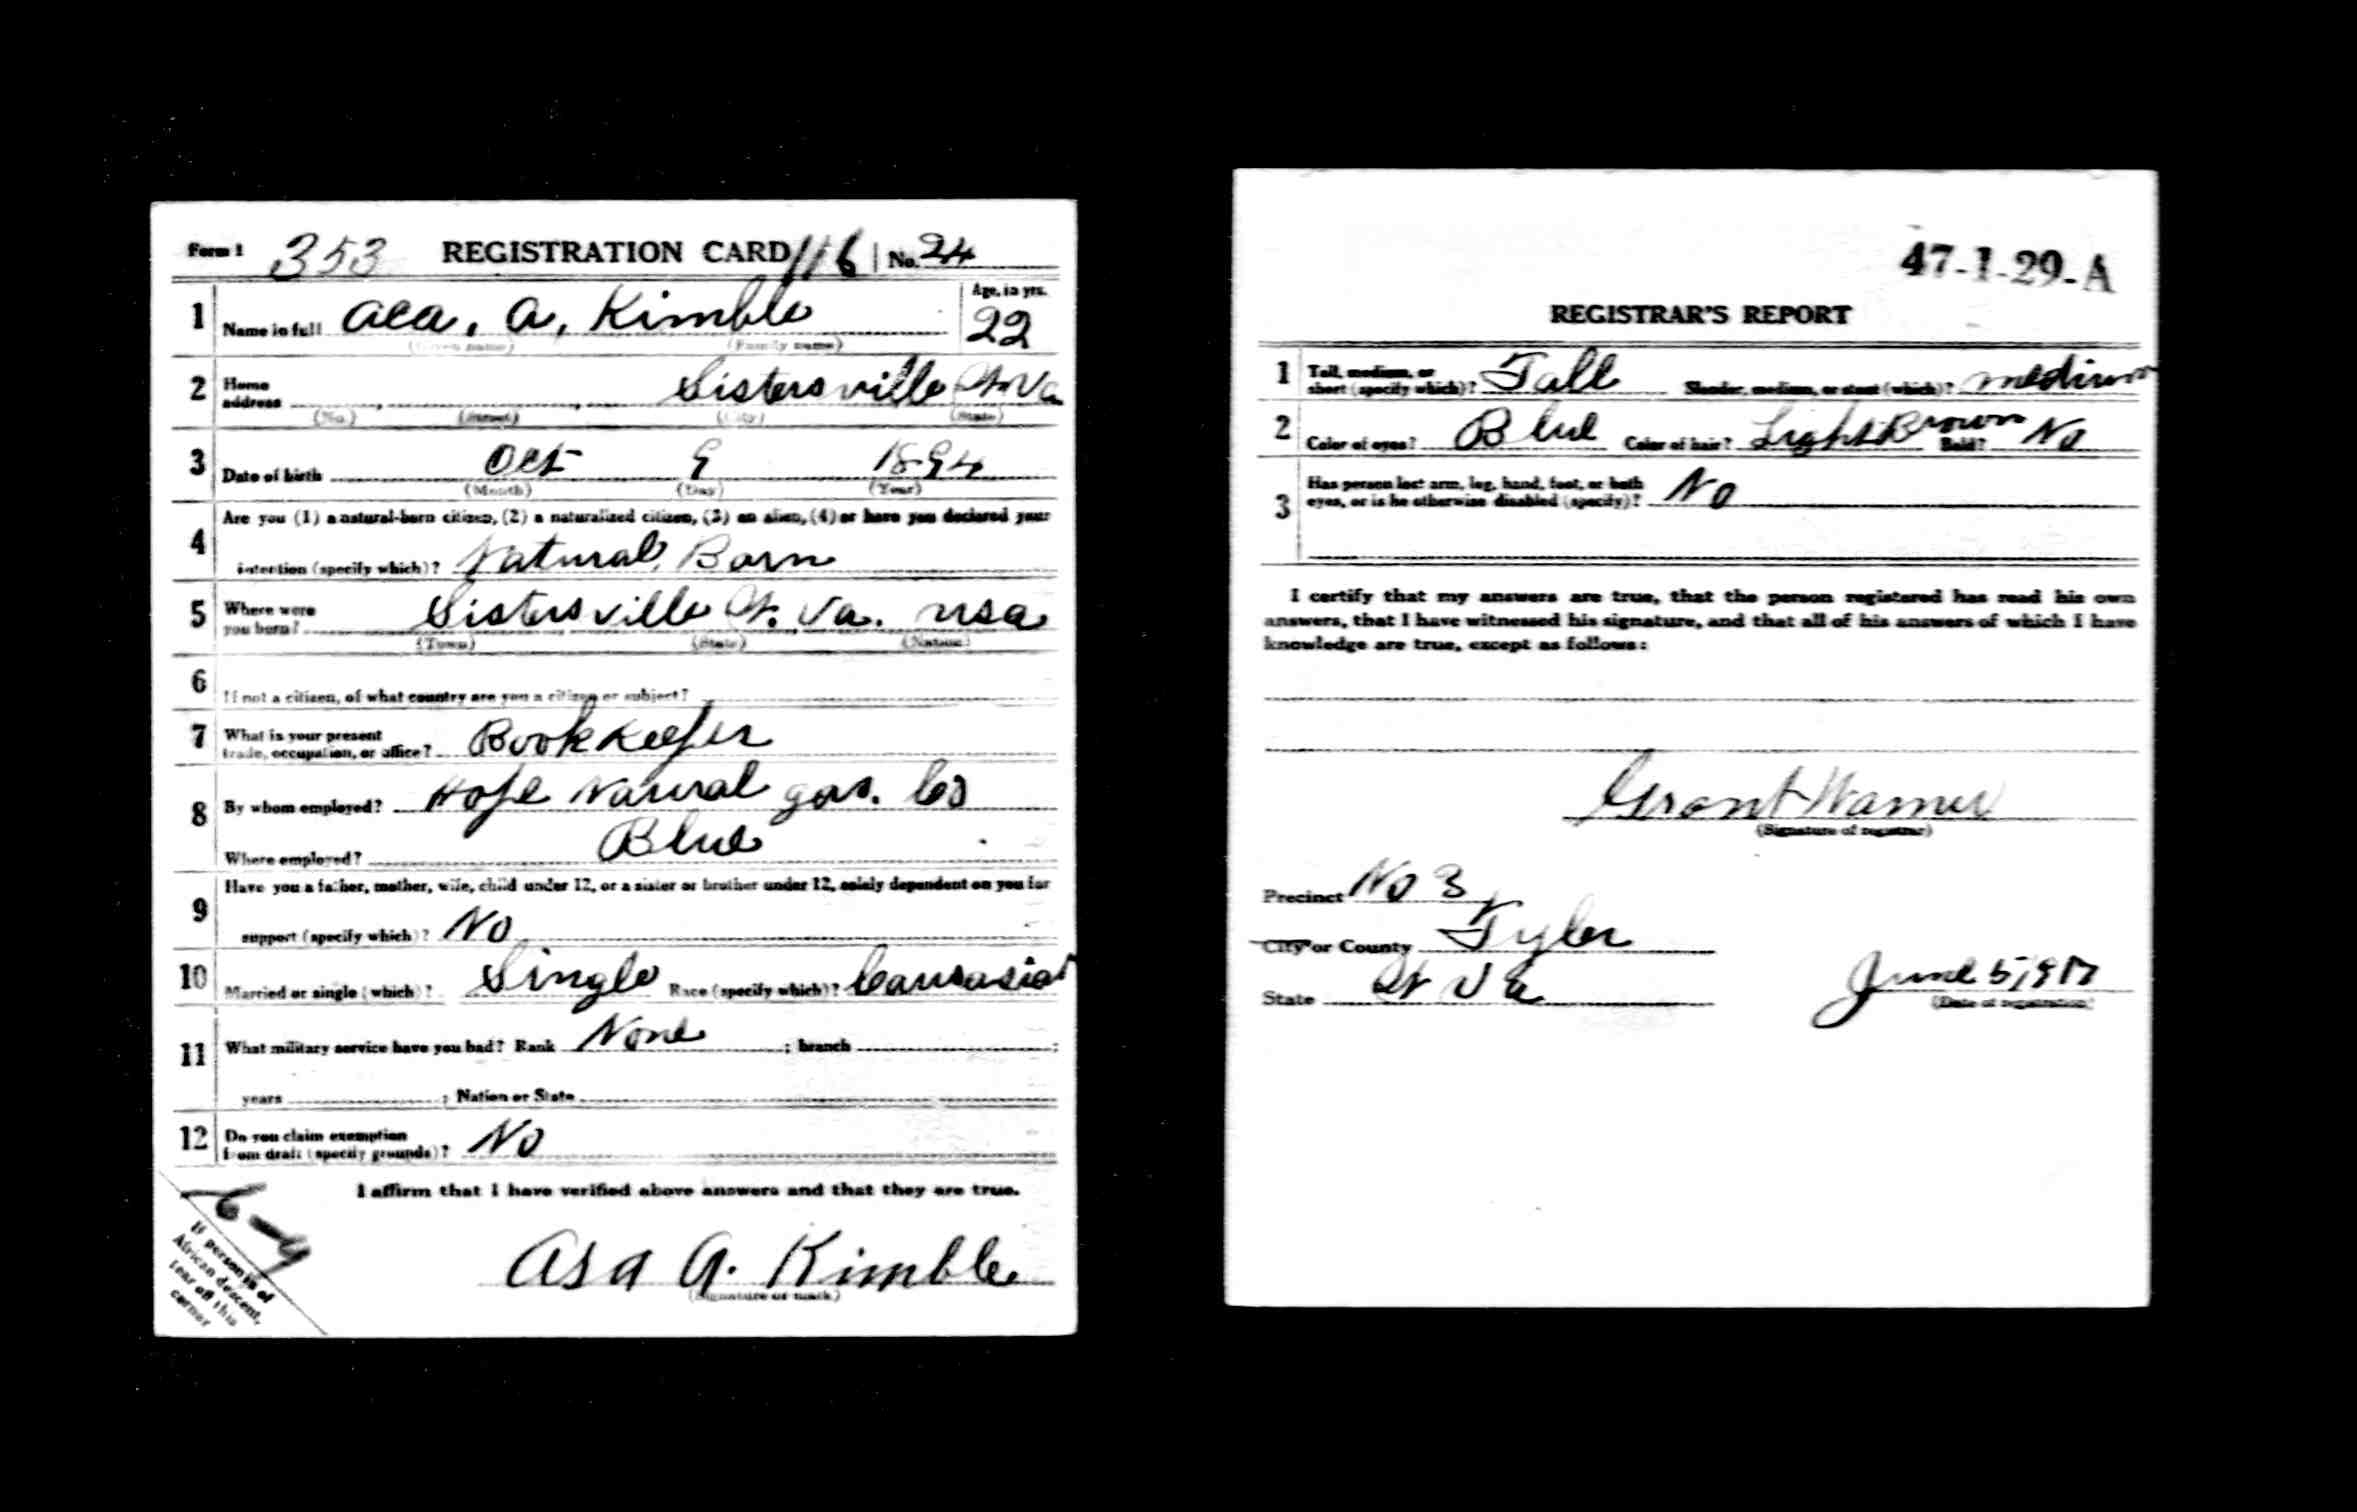 Form 1 353 REGISTRATION CARD 116 No. 24
1 Name in full Aca. A. Kimble Age, in yrs. 22
(Given name) (Family name)
2 Home address Sistersville W Va
(No.) (Street) (City) (State)
3 Date of birth Oct 9 1894
(Month) (Day) (Year)
Are you (1) a natural-born citizen, (2) a naturalized citizen, (3) an alien, (4) or have you declared your
4 intention (specify which)? Natural Born
5 Where were you born? Sistersville W. Va. USA
(Town) (State) (Nation)
6 If not a citizen, of what country are you a citizen or subject?
7 What is your present trade, occupation, or office? Bookkeeper
8 By whom employed? Hope Natural gas. Co
Where employed? Blue
Have you a father, mother, wife, child under 12, or a sister or brother under 12, solely dependent on you for
9 support (specify which)? No
10 Married or single (which)? Single Race (specify which)? Caucasian
11 What military service have you had? Rank None ; branch ;
years ; Nation or State
12 Do you claim exemption from draft (specify grounds)? No
I affirm that I have verified above answers and that they are true.
Asa A. Kimble
(Signature or mark)
If person is of
African descent,
tear off this
corner
47-1-29-A
REGISTRAR'S REPORT
1 Tall, medium, or short (specify which)? Tall Slender, medium, or stout (which)? medium
2 Color of eyes? Blue Color of hair? Light Brown Bald? No
3 Has person lost arm, leg, hand, foot, or both eyes, or is he otherwise disabled (specify)? No
I certify that my answers are true, that the person registered has read his own
answers, that I have witnessed his signature, and that all of his answers of which I have
knowledge are true, except as follows:
Grant Warner
(Signature of registrar)
Precinct No 3
City or County Tyler
State W Va June 5, 1917
(Date of registration)